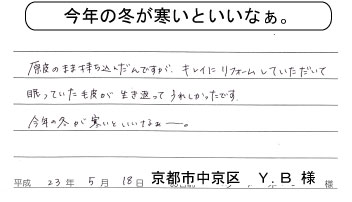 今年の冬が寒いといいなぁ。
原皮のまま持ち込んだんですが、キレイにリフォームしていただいて
眠っていた毛皮が生き返ってうれしかったです。
今年の冬が寒いといいなぁー。
平成 23年 5月 18日 京都市中京区 Y.B 様 様